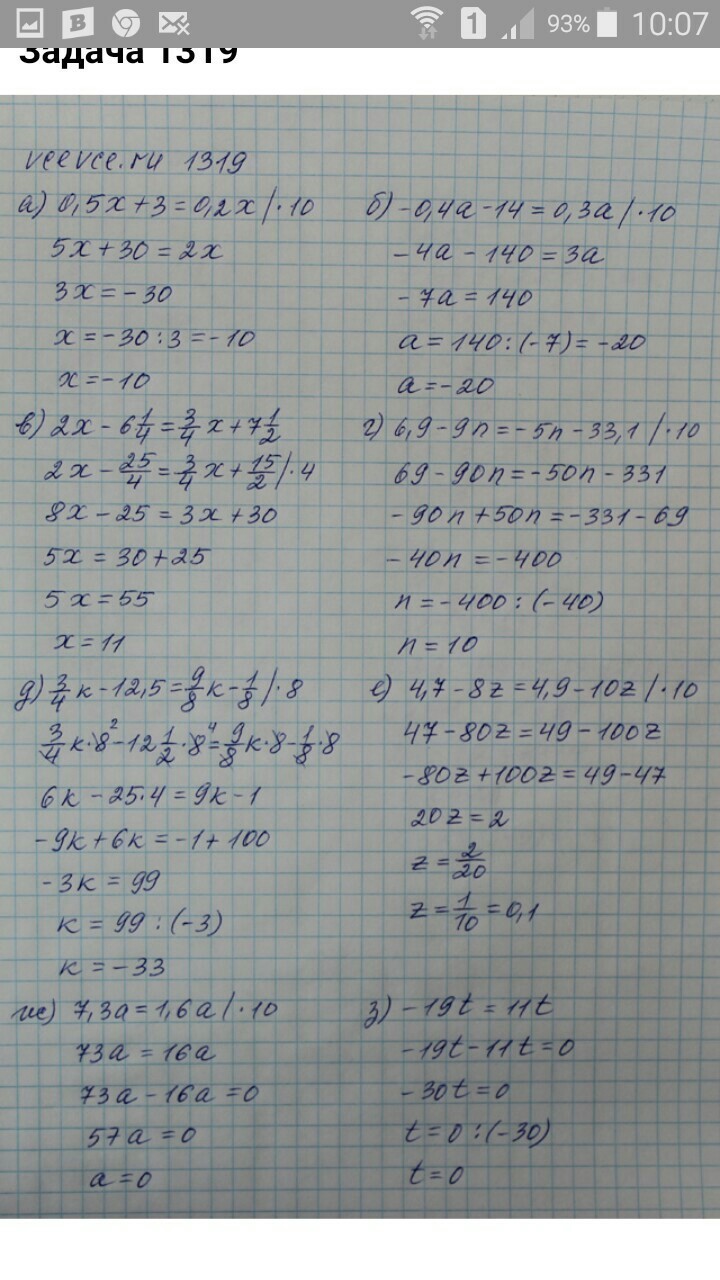 93% 10:07
Задача 1319
veevce.ru 1319
а) 0,5x+3=0,2x/·10
5x+30=2x
3x=-30
x=-30:3=-10
x=-10
б) -0,4a-14=0,3a/·10
-4a-140=3a
-7a=140
a=140:(-7)=-20
a=-20
в) 2x-6 1/4=3/4 x+7 1/2
2x-25/4=3/4 x+15/2/·4
8x-25=3x+30
5x=30+25
5x=55
x=11
г) 6,9-9n=-5n-33,1/·10
69-90n=-50n-331
-90n+50n=-331-69
-40n=-400
n=-400:(-40)
n=10
д) 3/4 к-12,5=9/8 к-1/8/·8
3/4 к·8²-12 1/2·8⁴=9/8 к·8-1/8·8
6к-25·4=9к-1
-9к+6к=-1+100
-3к=99
к=99:(-3)
к=-33
е) 4,7-8z=4,9-10z/·10
47-80z=49-100z
-80z+100z=49-47
20z=2
z=2/20
z=1/10=0,1
ж) 7,3a=1,6a/·10
73a=16a
73a-16a=0
57a=0
a=0
з) -19t=11t
-19t-11t=0
-30t=0
t=0:(-30)
t=0